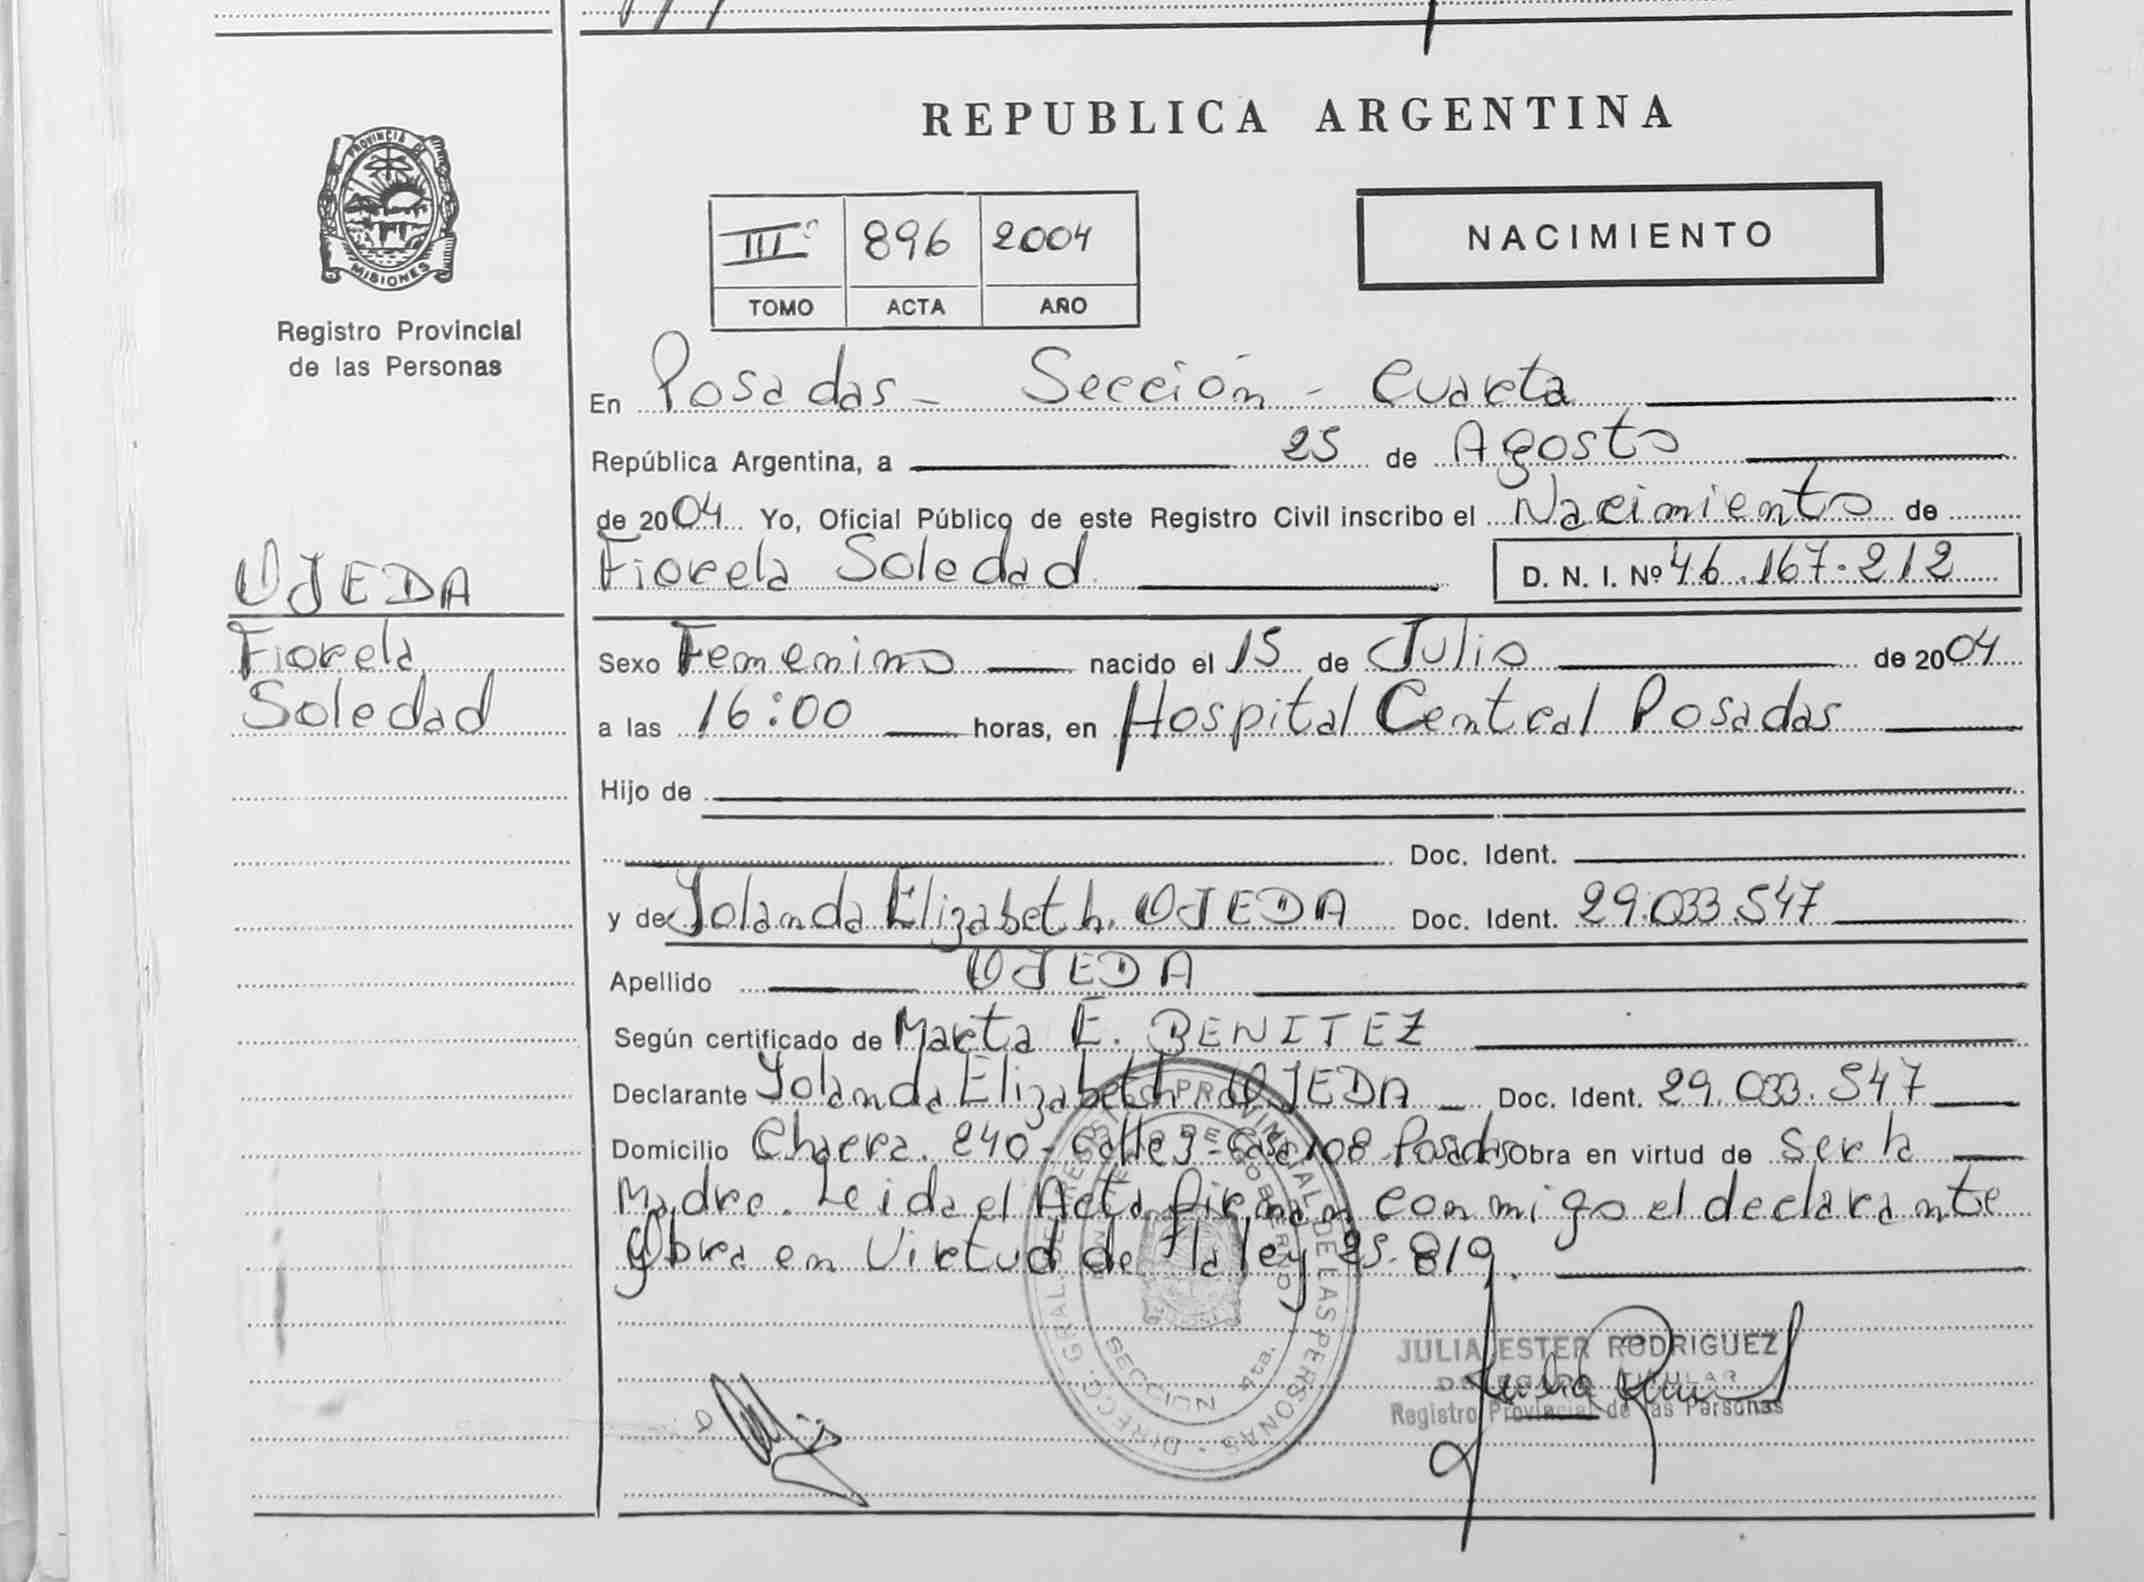 REPUBLICA ARGENTINA
PROVINCIA DE
MISIONES
Registro Provincial
de las Personas
III 896 2004
TOMO ACTA AÑO
NACIMIENTO
En Posadas - Sección - Cuarta
República Argentina, a 25 de Agosto
de 2004 Yo, Oficial Público de este Registro Civil inscribo el Nacimiento de
OJEDA
Fiorela Soledad D. N. I. Nº 46.167.212
Fiorela
Sexo Femenino nacido el 15 de Julio de 2004
Soledad
a las 16:00 horas, en Hospital Central Posadas
Hijo de
Doc. Ident.
y de Yolanda Elizabeth OJEDA Doc. Ident. 29.033.547
Apellido OJEDA
Según certificado de Marta E. BENITEZ
Declarante Yolanda Elizabeth OJEDA Doc. Ident. 29.033.547
Domicilio Chacra 240 - Calle 9 - Casa 108 Posadas Obra en virtud de Ser la
Madre. Leida el Acta firman conmigo el declarante
y Obra en Virtud de la ley 25.819.
DIRECC. GRAL. DE REGISTRO PROVINCIAL DE LAS PERSONAS
SECCION 4ta.
JULIA ESTER RODRIGUEZ
DELEGADA TITULAR
Registro Provincial de las Personas